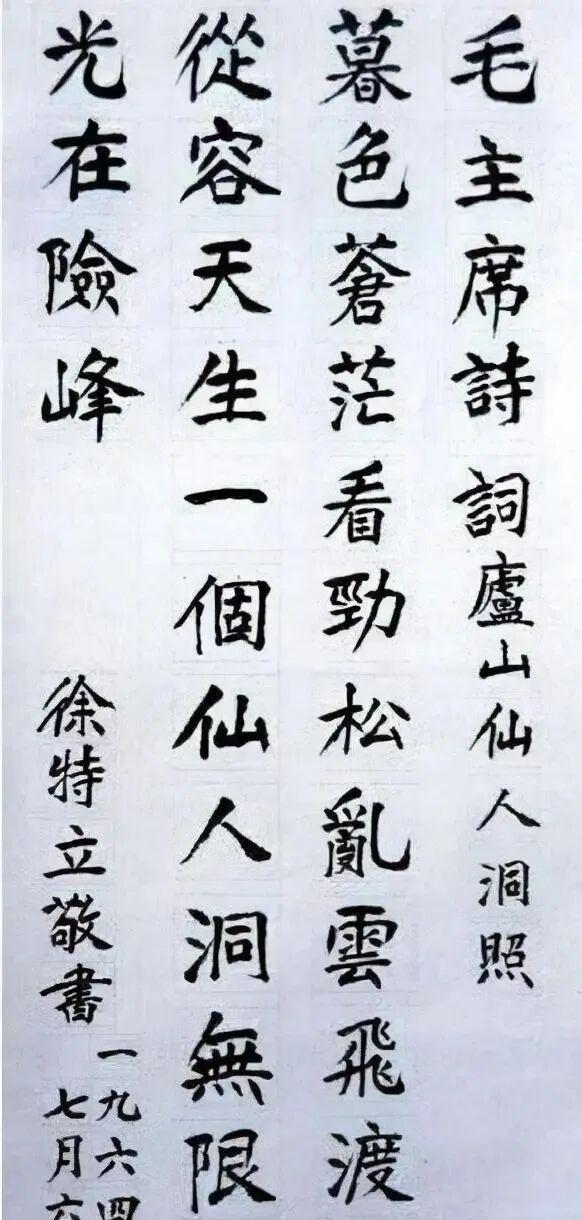 毛主席詩詞廬山仙人洞照
暮色蒼茫看勁松亂雲飛渡
從容天生一個仙人洞無限
光在險峰
徐特立敬書
一九六四
七月六